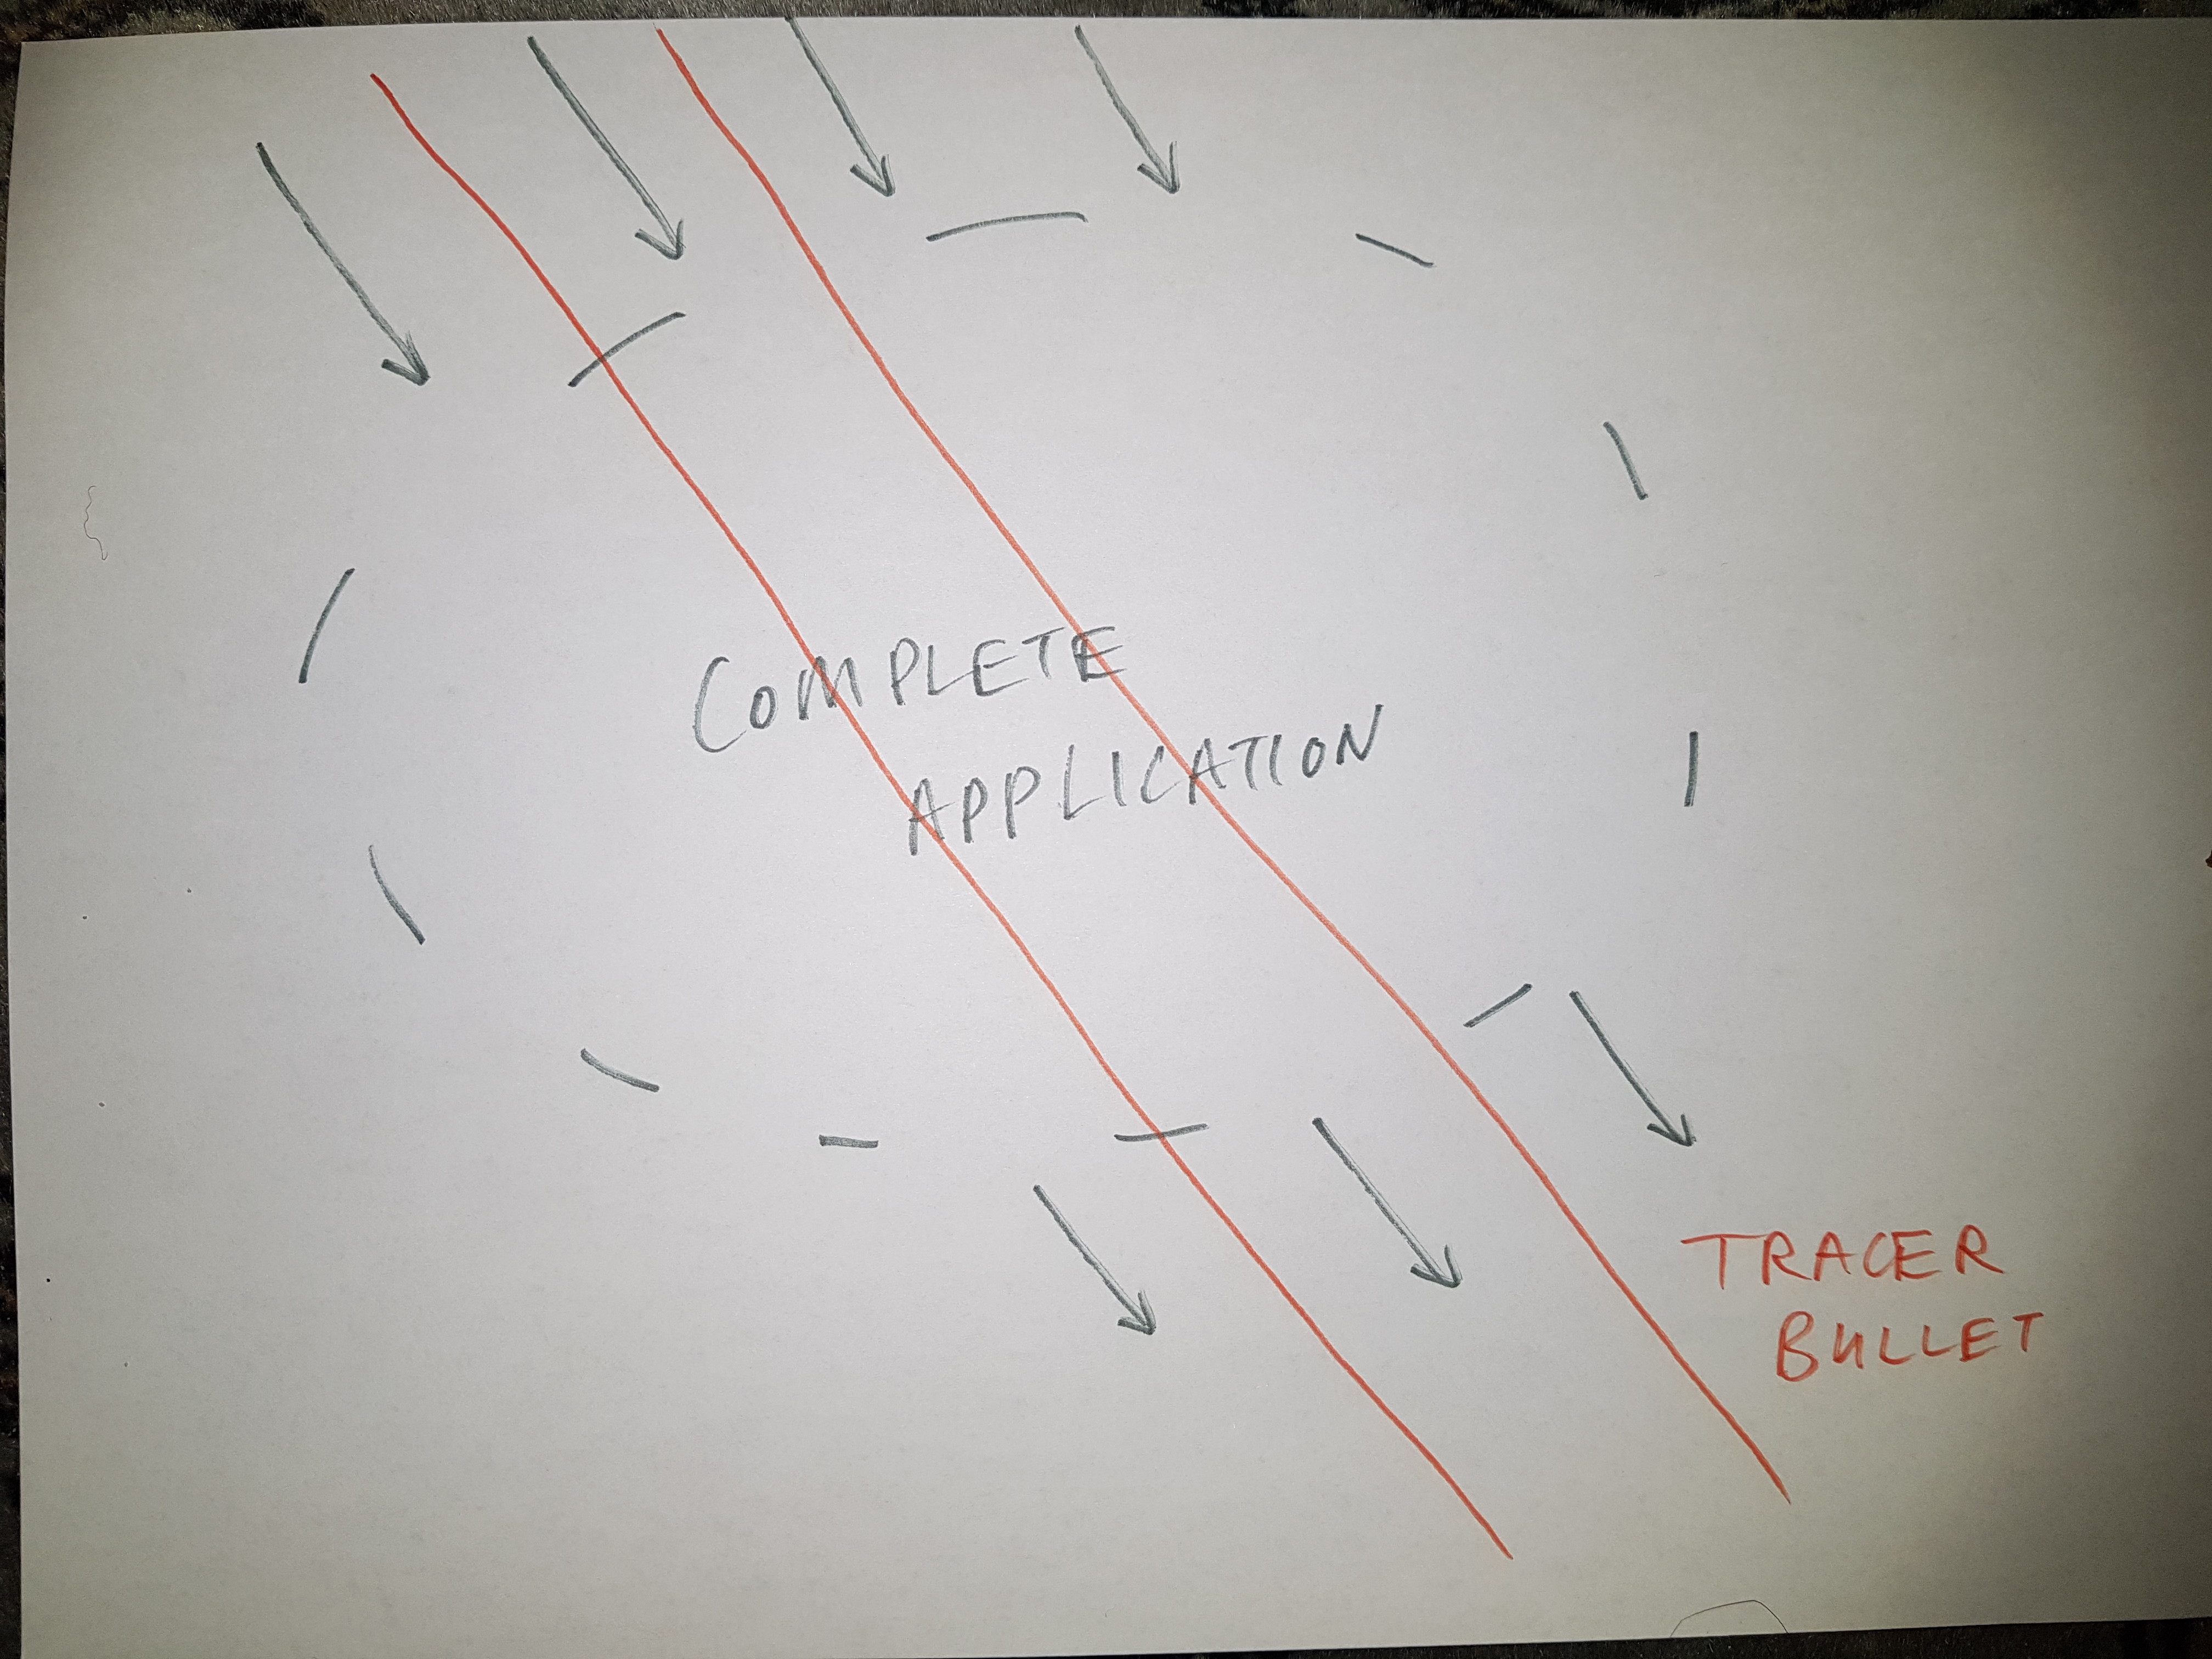 COMPLETE
APPLICATION
TRACER
BULLET